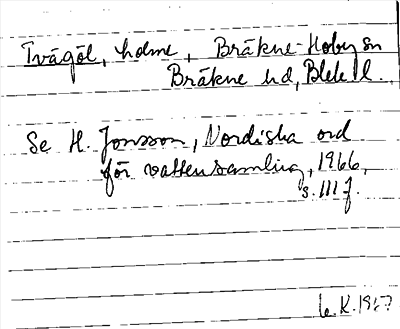 Tvägöl, holme, Bräkne-Hoby sn
Bräkne hd, Blek l.
Se H. Jonsson, Nordiska ord
för vattensamling, 1966,
s. 111 f.
K. 1967